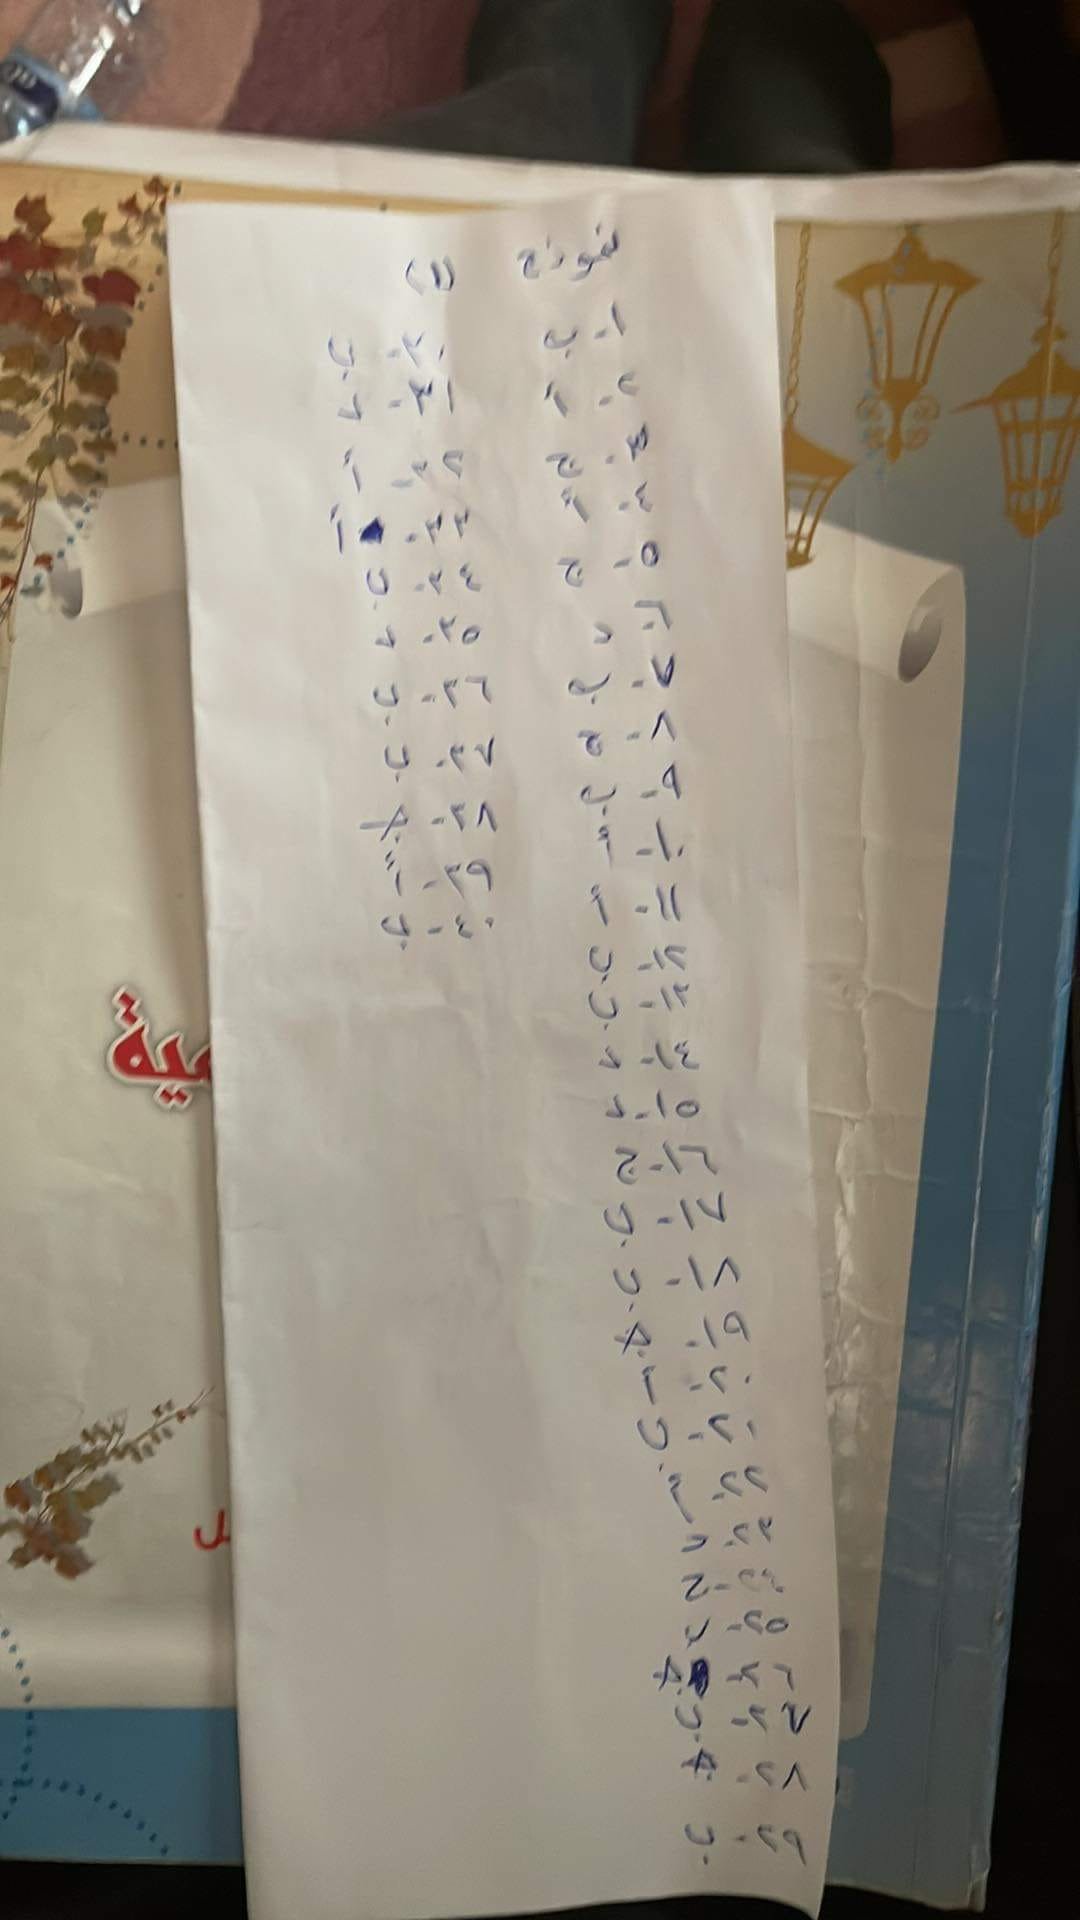 نموذج (١)
١- ب
٢- أ
٣- ج
٤- أ
٥- ج
٦- د
٧- ب
٨- ج
٩- ب
١٠- أ
١١- أ
١٢- ب
١٣- ب
١٤- د
١٥- د
١٦- ج
١٧- ب
١٨- ب
١٩- جـ
٢٠- أ
٢١- ب
٢٢- أ
٢٣- د
٢٤- ج
٢٥- د
٢٦- جـ
٢٧- ب
٢٨- جـ
٢٩- ب
٣٠- ب
٣١- د
٣٢- أ
٣٣- أ
٣٤- ب
٣٥- د
٣٦- ب
٣٧- ب
٣٨- جـ
٣٩- أ
٤٠- ب